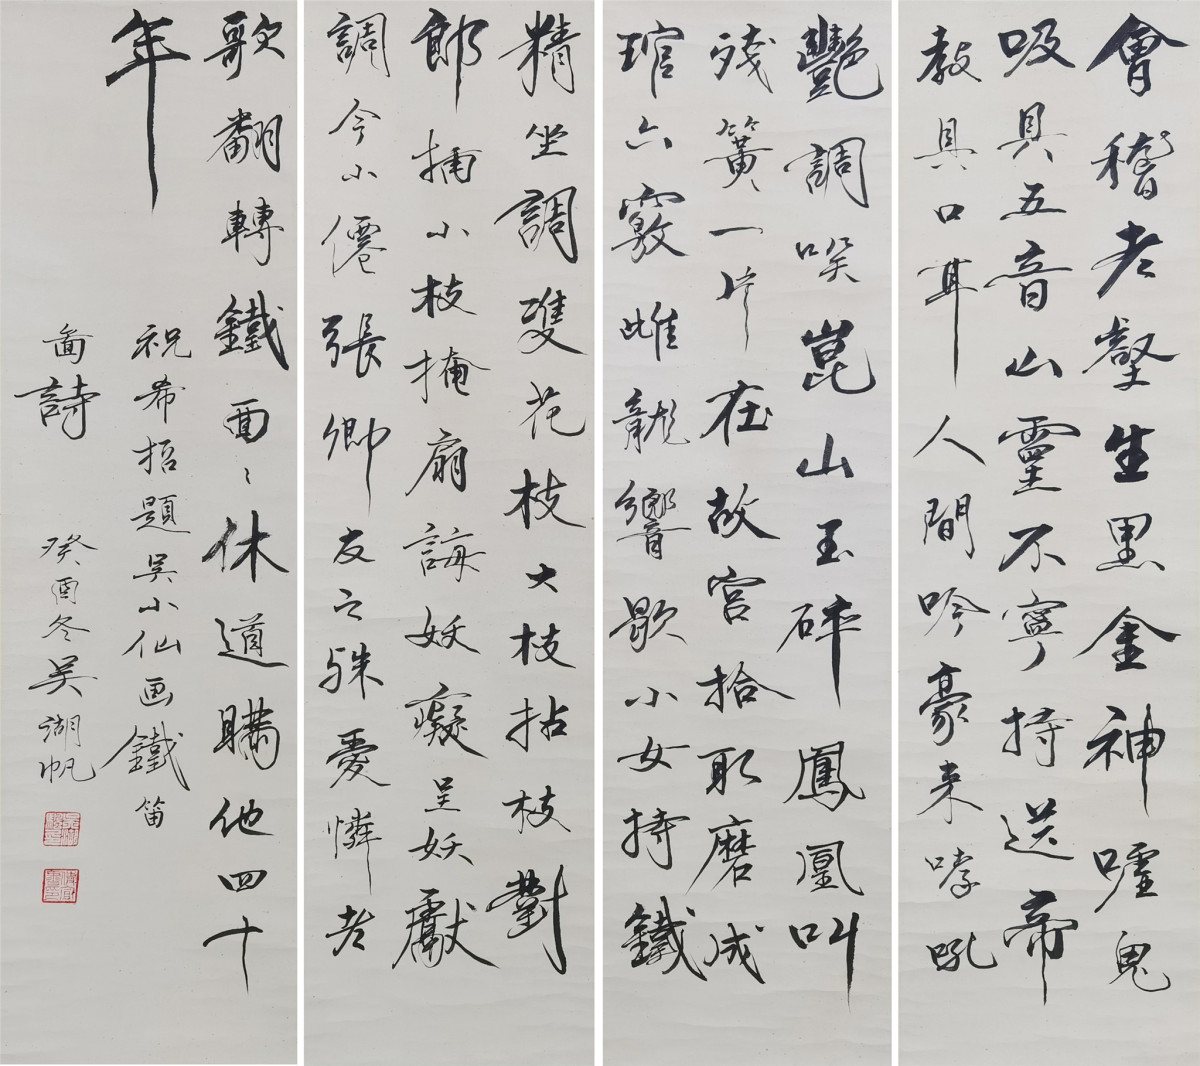 會稽老壑生黑金神嘘鬼
吸具五音山靈不寧持送帝
教具口耳人間吟豪来嗥吼
艷調哭崑山玉碎鳳凰叫
殘簧一片在故宮拾取磨成
琯六竅雌龍響歇小女持鐵
精坐調雙花枝大枝拈枝對
郎插小枝掩扇誨妖癡呈妖獻
調今小僊張卿友之殊憂憐老
歌翻轉鐵面々休道購他四十
年
祝希招題吳小仙画鐵笛
啚詩
癸酉冬吳湖帆